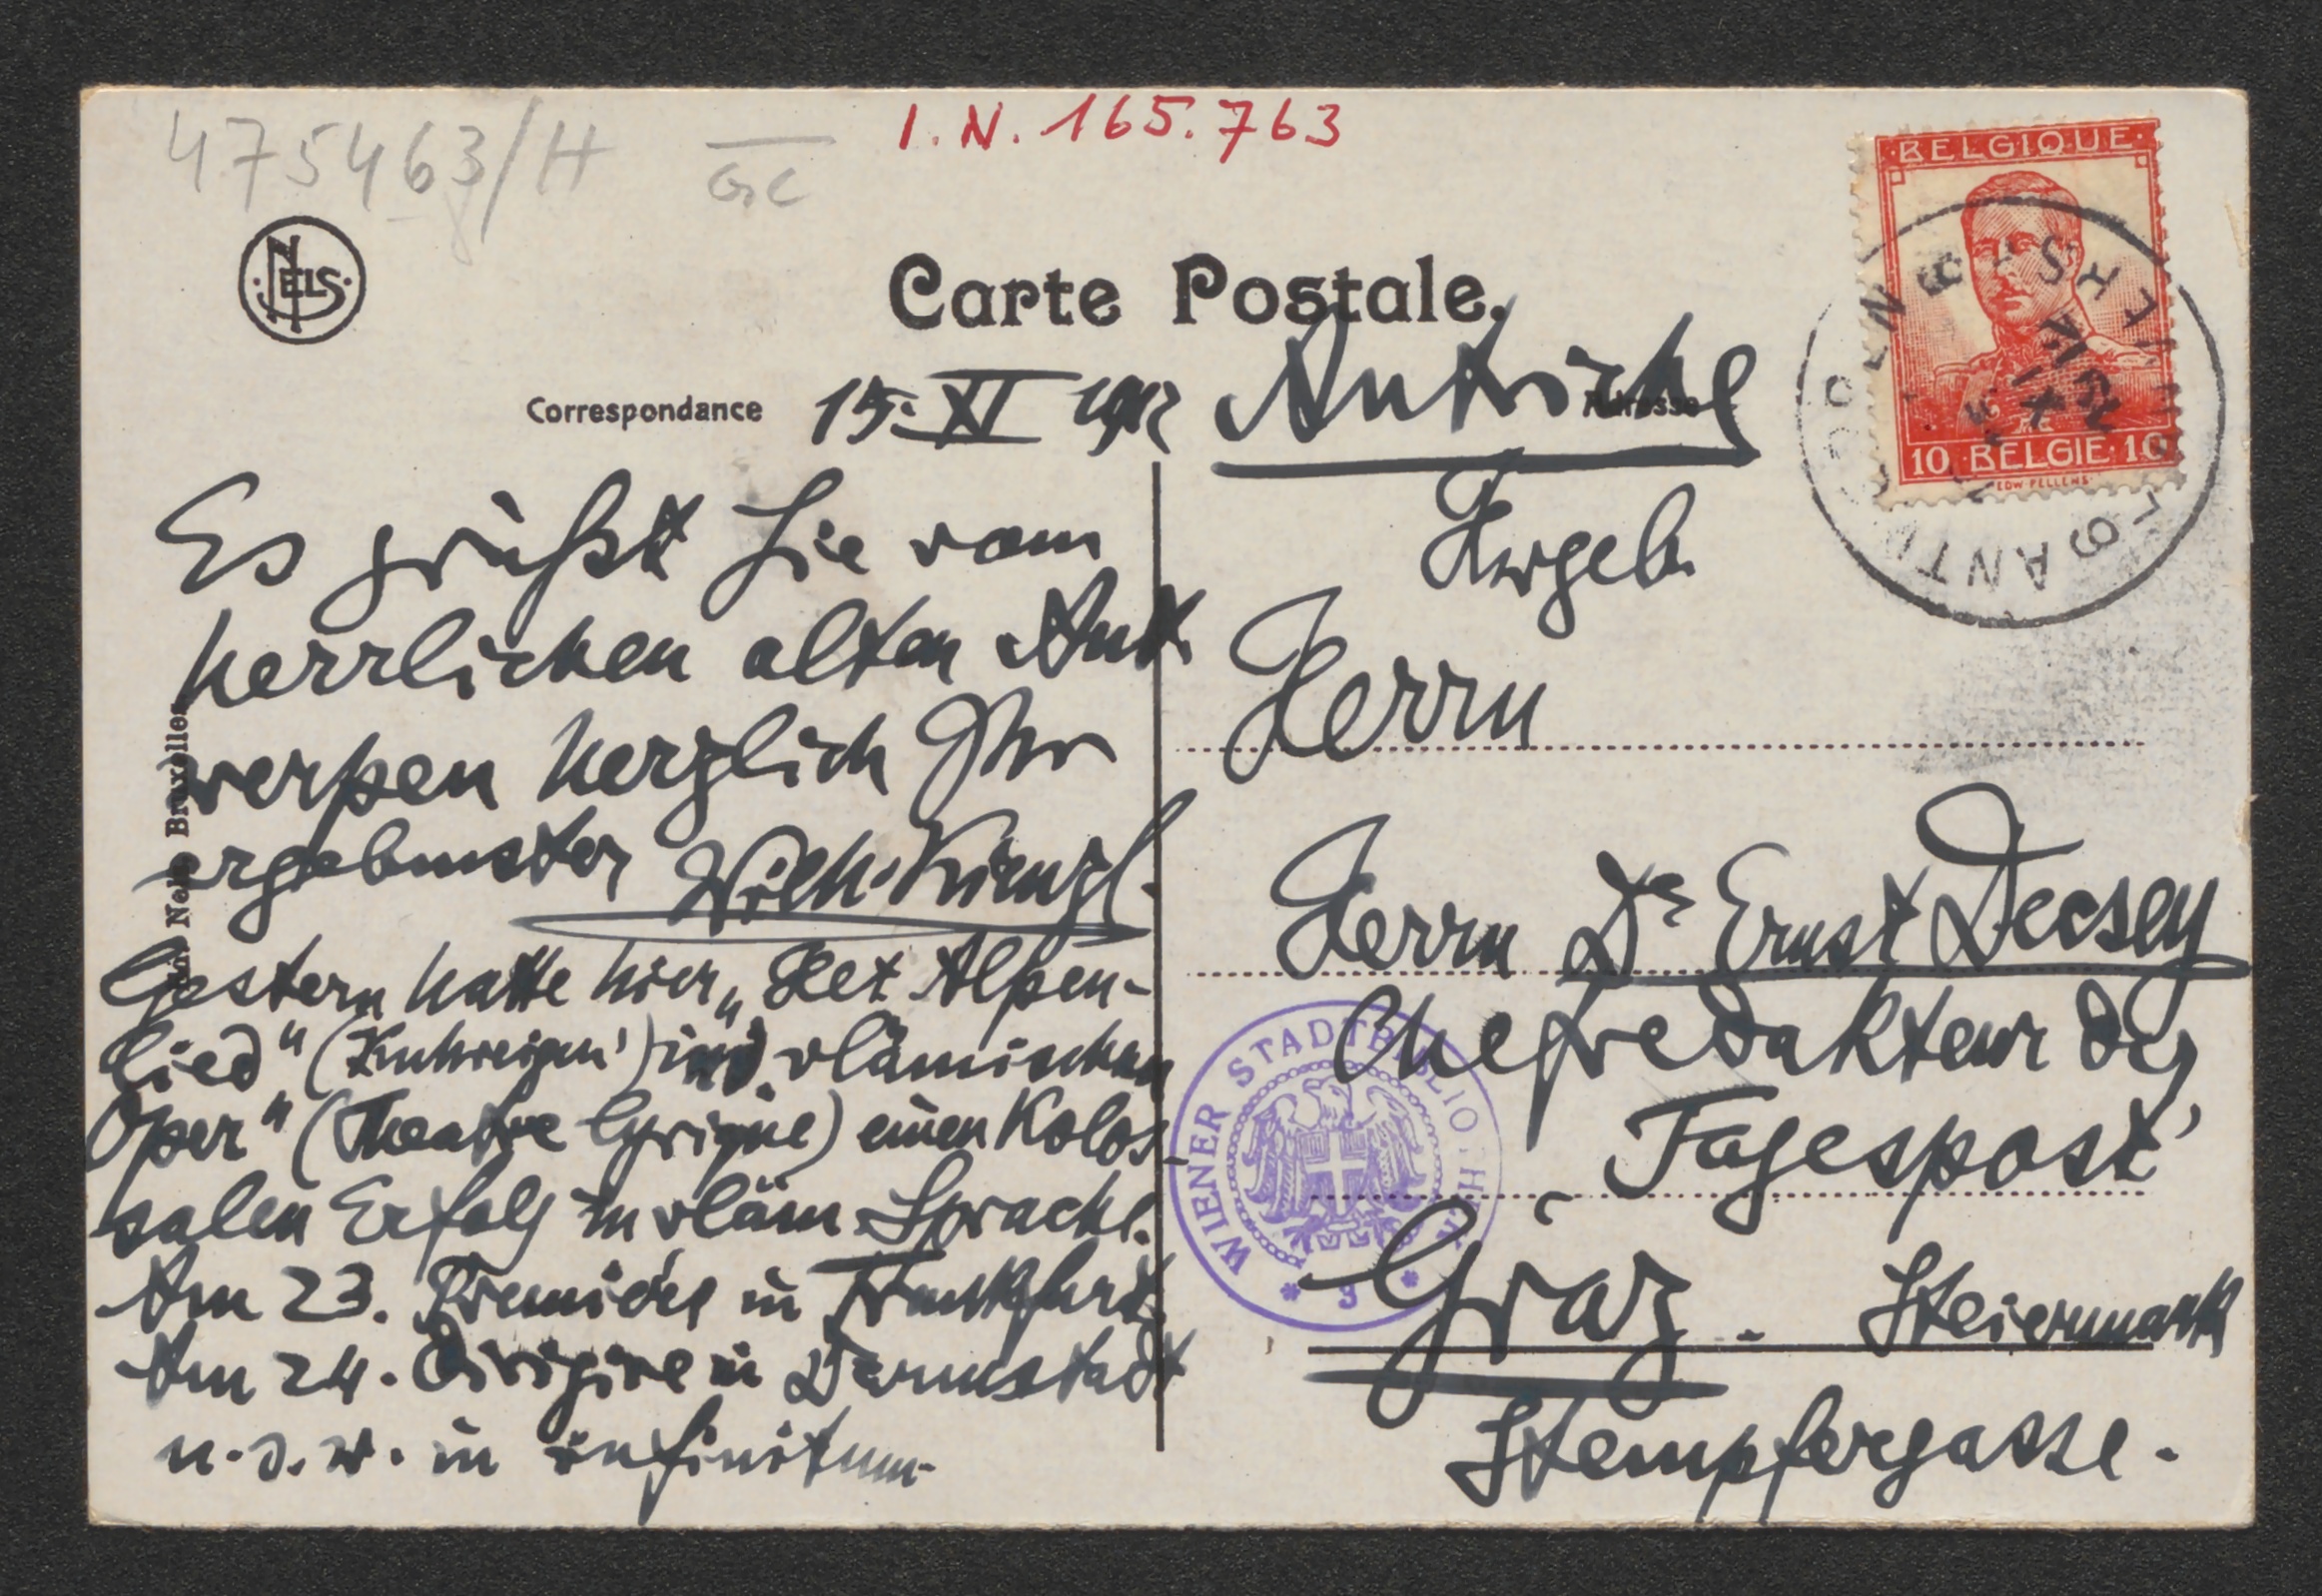 475463/H
I. N. 165.763
G,C
NELS
Carte Postale.
Correspondance
Adresse
15. XI 1912
Es grüßt Sie vom
herrlichen alten Ant
werpen herzlich Ihr
ergebenster Wilh. Kienzl.
Gestern hatte hier „Het Alpen-
lied" (Kuhreigen') in d. vlämischen
Oper" (Theatre lyrique) einen Kolos-
salen Erfolg in vläm Sprache.
Am 23. Première in Frankfurt.
Am 24. dirigire in Darmstadt
u. s. w. in infinitum.
Nels Bruxelles
Autriche
Herrn
Herrn Dr Ernst Decsey
Chefredakteur der
„Tagespost'
Graz. Steiermark
Stempfergasse.
BELGIQUE
10 BELGIE 10
WIENER STADTBIBLIOTHEK